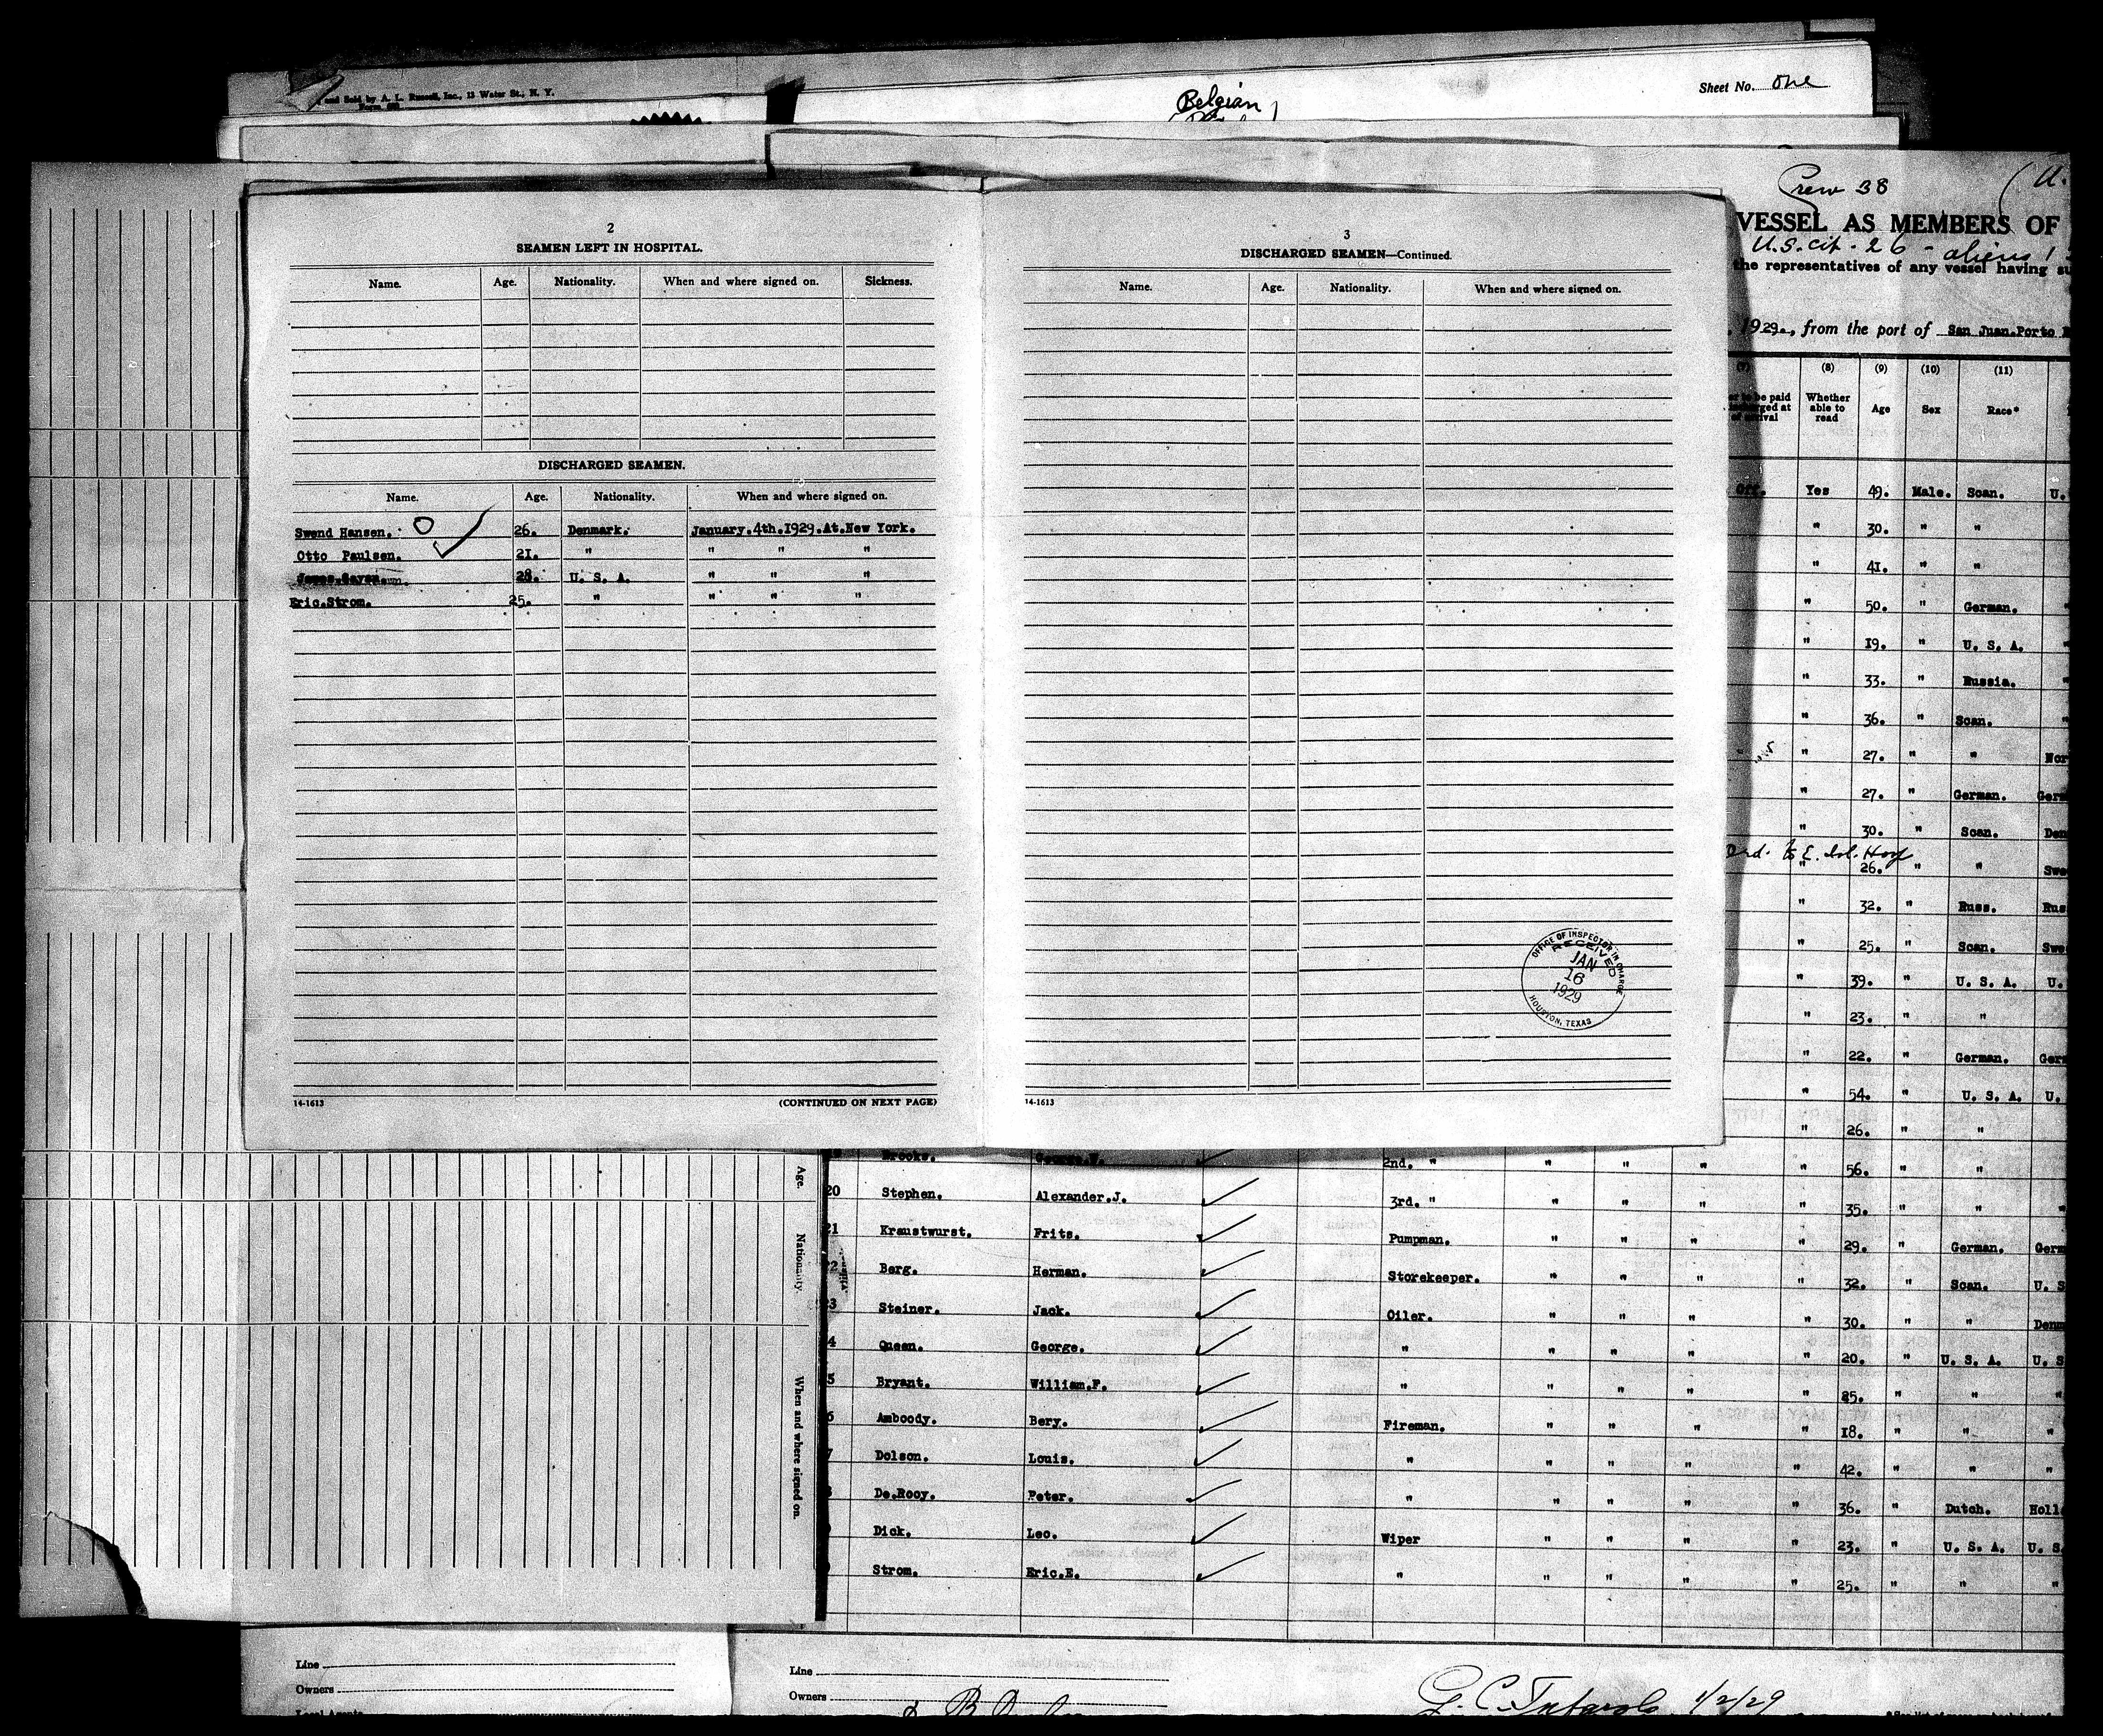 and Sold by A. L. Russell, Inc., 13 Water St., N. Y.
Belgian
Sheet No. One
Crew 38
VESSEL AS MEMBERS OF
U.S. cit - 26 - aliens
the representatives of any vessel having
1929., from the port of San Juan.Porto
(7) (8) (9) (10) (11)
Whether able to read Age Sex Race*
Yes 49. Male. Scan. U.
" 30. " "
" 41. " "
" 50. " German.
" 19. " U. S. A.
" 33. " Russia.
" 36. " Scan.
" 27. " " Nor
" 27. " German. Germ
" 30. " Scan. Den
" 26. " " Swe
" 32. " Russ. Rus
" 25. " Scan. Swe
" 39. " U. S. A. U.
" 23. " "
" 22. " German. Ger
" 54. " U. S. A. U.
" 26. " "
2
SEAMEN LEFT IN HOSPITAL.
Name. Age. Nationality. When and where signed on. Sickness.
DISCHARGED SEAMEN.
Name. Age. Nationality. When and where signed on.
Swend Hansen. 26. Denmark. January.4th.1929.At.New York.
Otto Paulsen. 21. " " " "
U. S. A. " " "
Eric.Strom. 25. " " " "
14-1613
(CONTINUED ON NEXT PAGE)
3
DISCHARGED SEAMEN—Continued.
Name. Age. Nationality. When and where signed on.
OFFICE OF INSPECTOR IN CHARGE
RECEIVED
JAN
16
1929
HOUSTON, TEXAS
14-1613
Age. Nationality. When and where signed on.
Brooks. George.W. 2nd. " " " " " 56. " "
20 Stephen. Alexander.J. 3rd. " " " " " 35. " " "
21 Kraustwurst. Frits. Pumpman. " " " " 29. " German. Germ
2 Berg. Herman. Storekeeper. " " " " 32. " Scan. U. S
3 Steiner. Jack. Oiler. " " " " 30. " " Denm
4 Queen. George. " " " " " 20. " U. S. A. U. S
5 Bryant. William.F. " " " " " 25. " " "
6 Amboody. Bery. Fireman. " " " " 18. " " "
7 Dolson. Louis. " " " " " 42. " " "
De.Rooy. Peter. " " " " " 36. " Dutch. Holl
Dick. Leo. Wiper " " " " 23. " U. S. A. U. S.
Strom. Eric.E. " " " " " 25. " " "
Line
Owners
Local Agents
Line
Owners
1/2/29